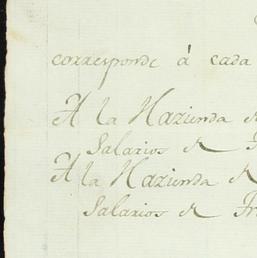 corresponde á cada
A la Hazienda de
Salarios de
A la Hazienda de
Salarios de